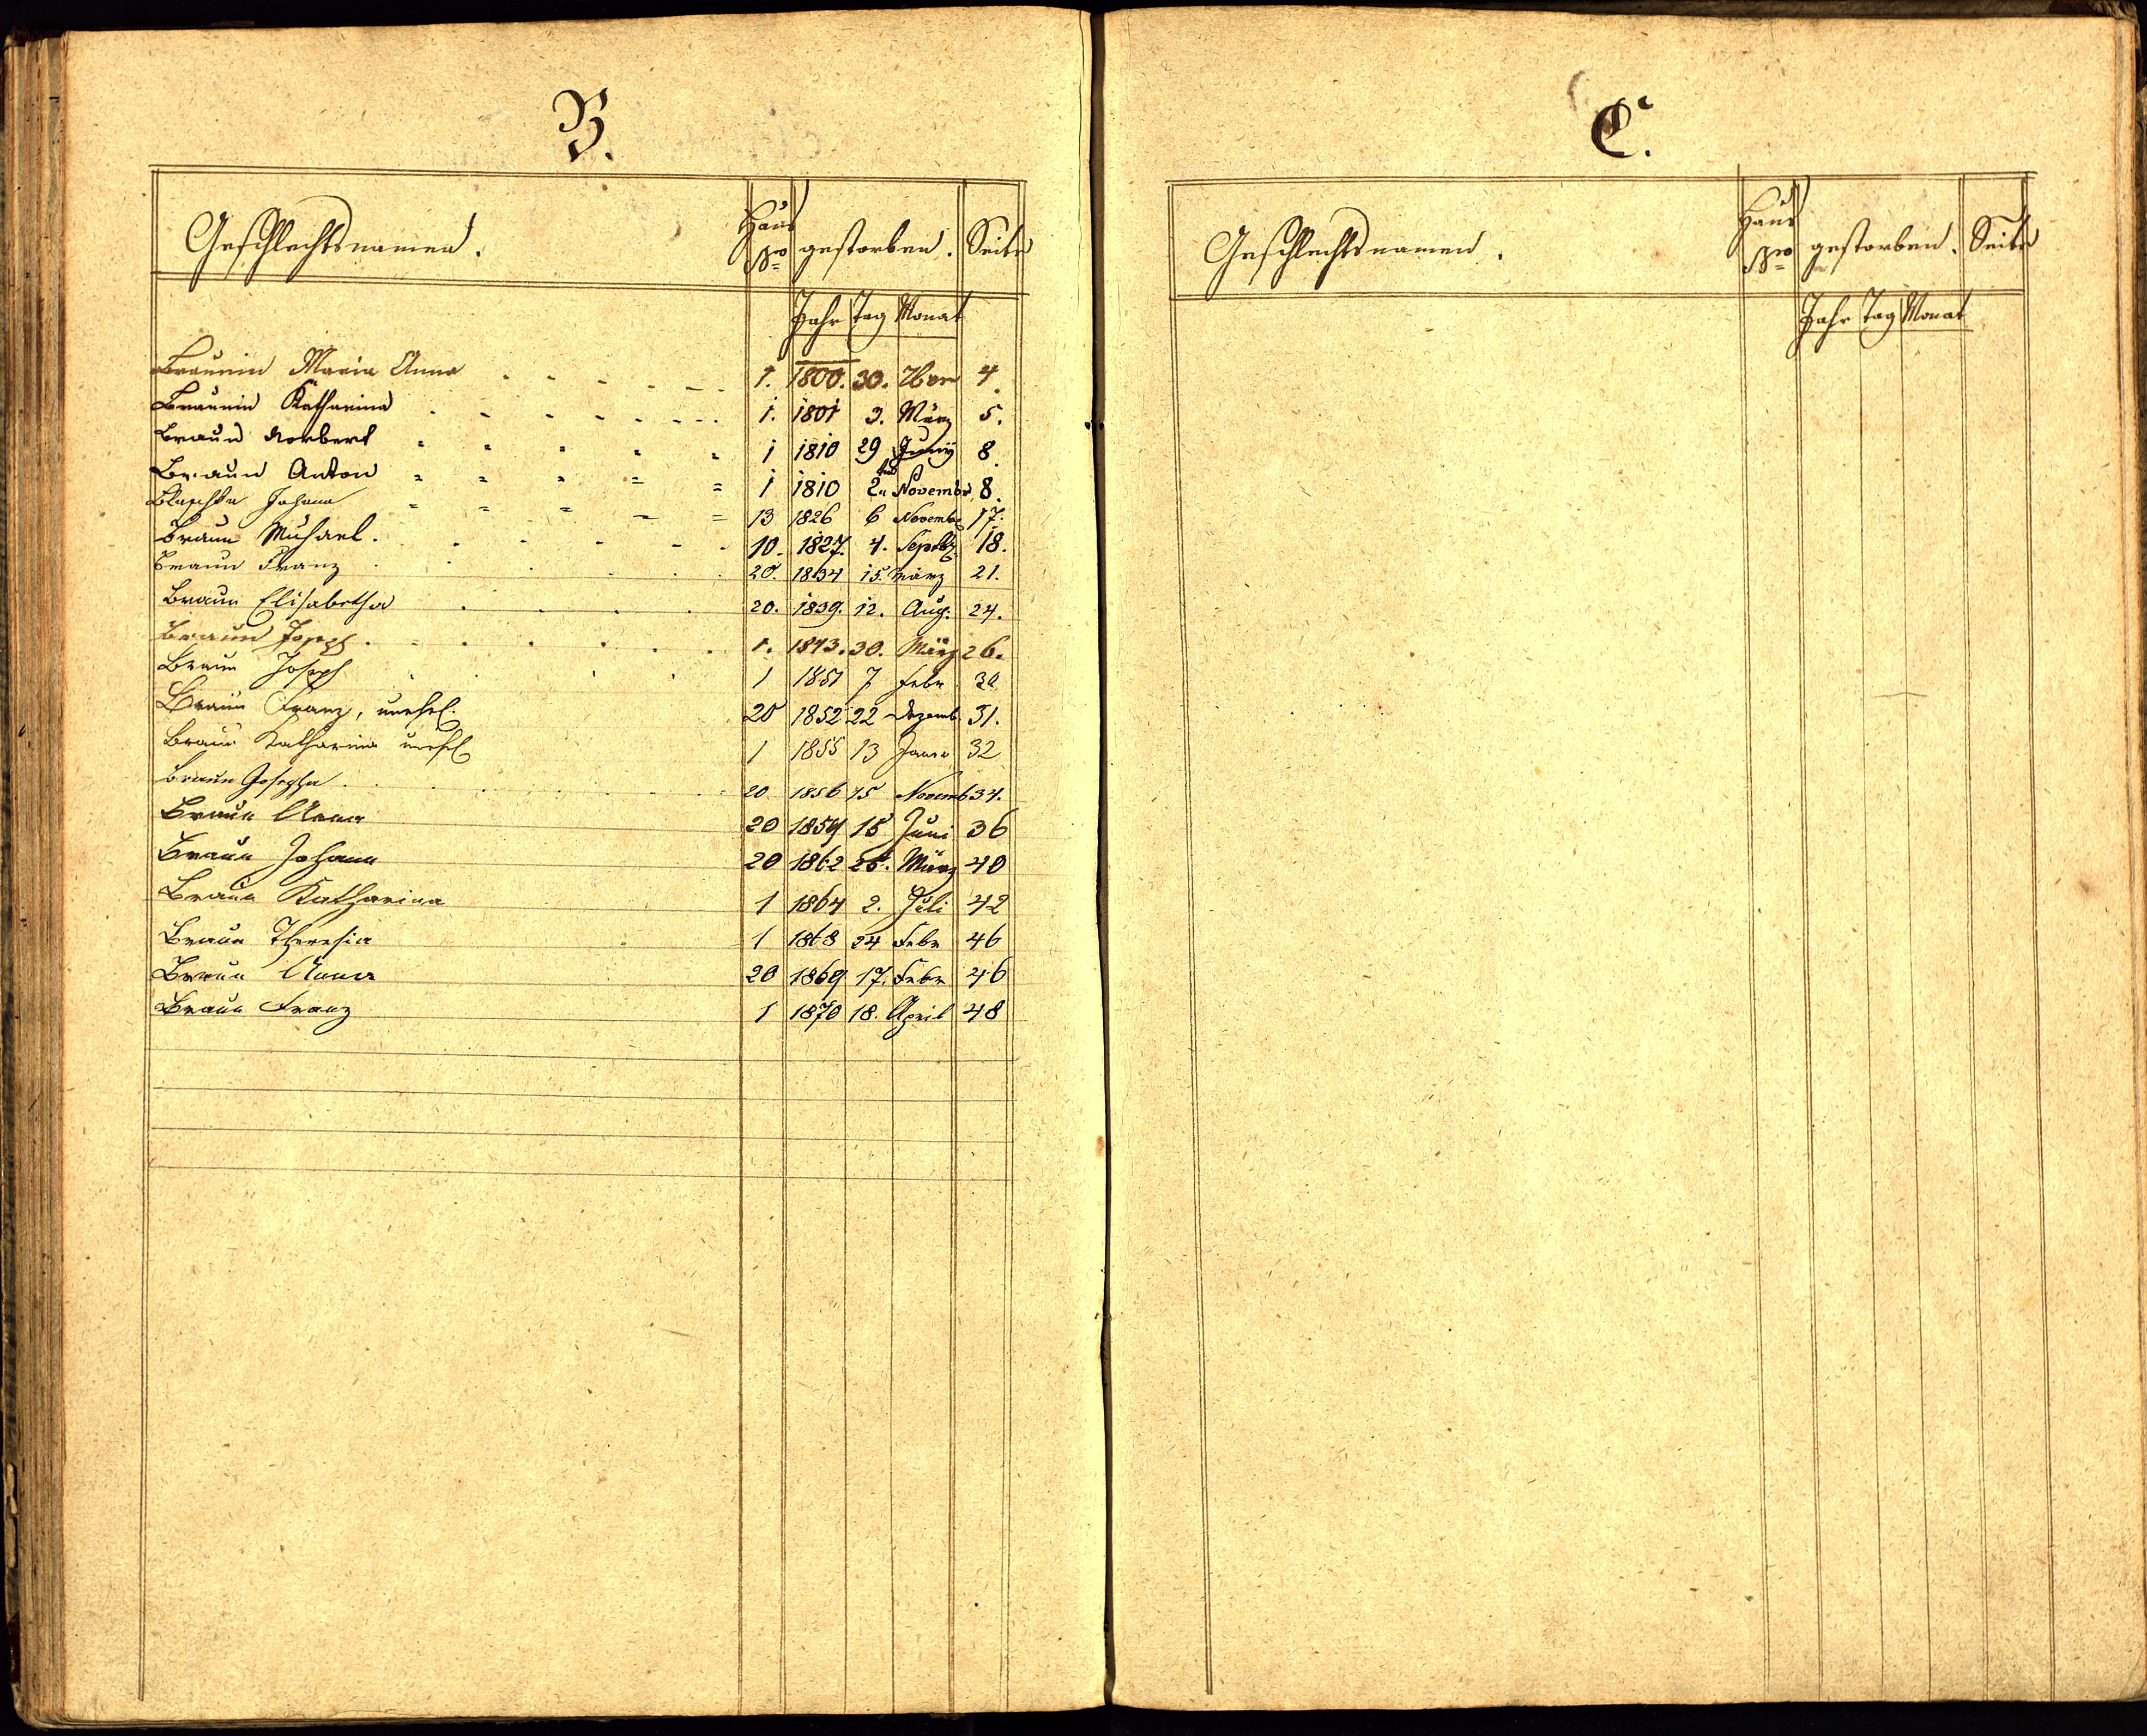 B.
Geschlechtsnamen. Haus Nro gestorben. Seite
Jahr Tag Monat
Braunin Maria Anna 1. 1800. 30. 7ber 4
Braunin Katharina 1. 1801 3. März 5.
Braun Norbert 1 1810 29 Juny 8
Braun Anton 1 1810 2ten Novembr 8.
Blaschke Johann 13 1826 6 Novemb 17.
Braun Michael. 10. 1827. 4. Septbr 18.
Braun Franz 20. 1834 15. März 21.
Braun Elisabetha 20. 1839. 12. Aug. 24.
Braun Joseph. 1. 1843. 30. März 26.
Braun Joseph 1 1851 7 Febr 30
Braun Franz, unehel. 20 1852 22 Dezemb. 31.
Braun Katharina unehel 1 1855 13 Janr 32
Braun Josepha 20 1856 15 Novemb 34.
Braun Anna 20 1859 15 Juni 36
Braun Johann 20 1862 26. März 40
Braun Katharina 1 1864 2. Juli 42
Braun Theresia 1 1868 24 Febr 46
Braun Anna 20 1869 17. Febr 46
Braun Franz 1 1870 18. April 48
C.
Geschlechtsnamen. Haus Nro gestorben. Seite
Jahr Tag Monat